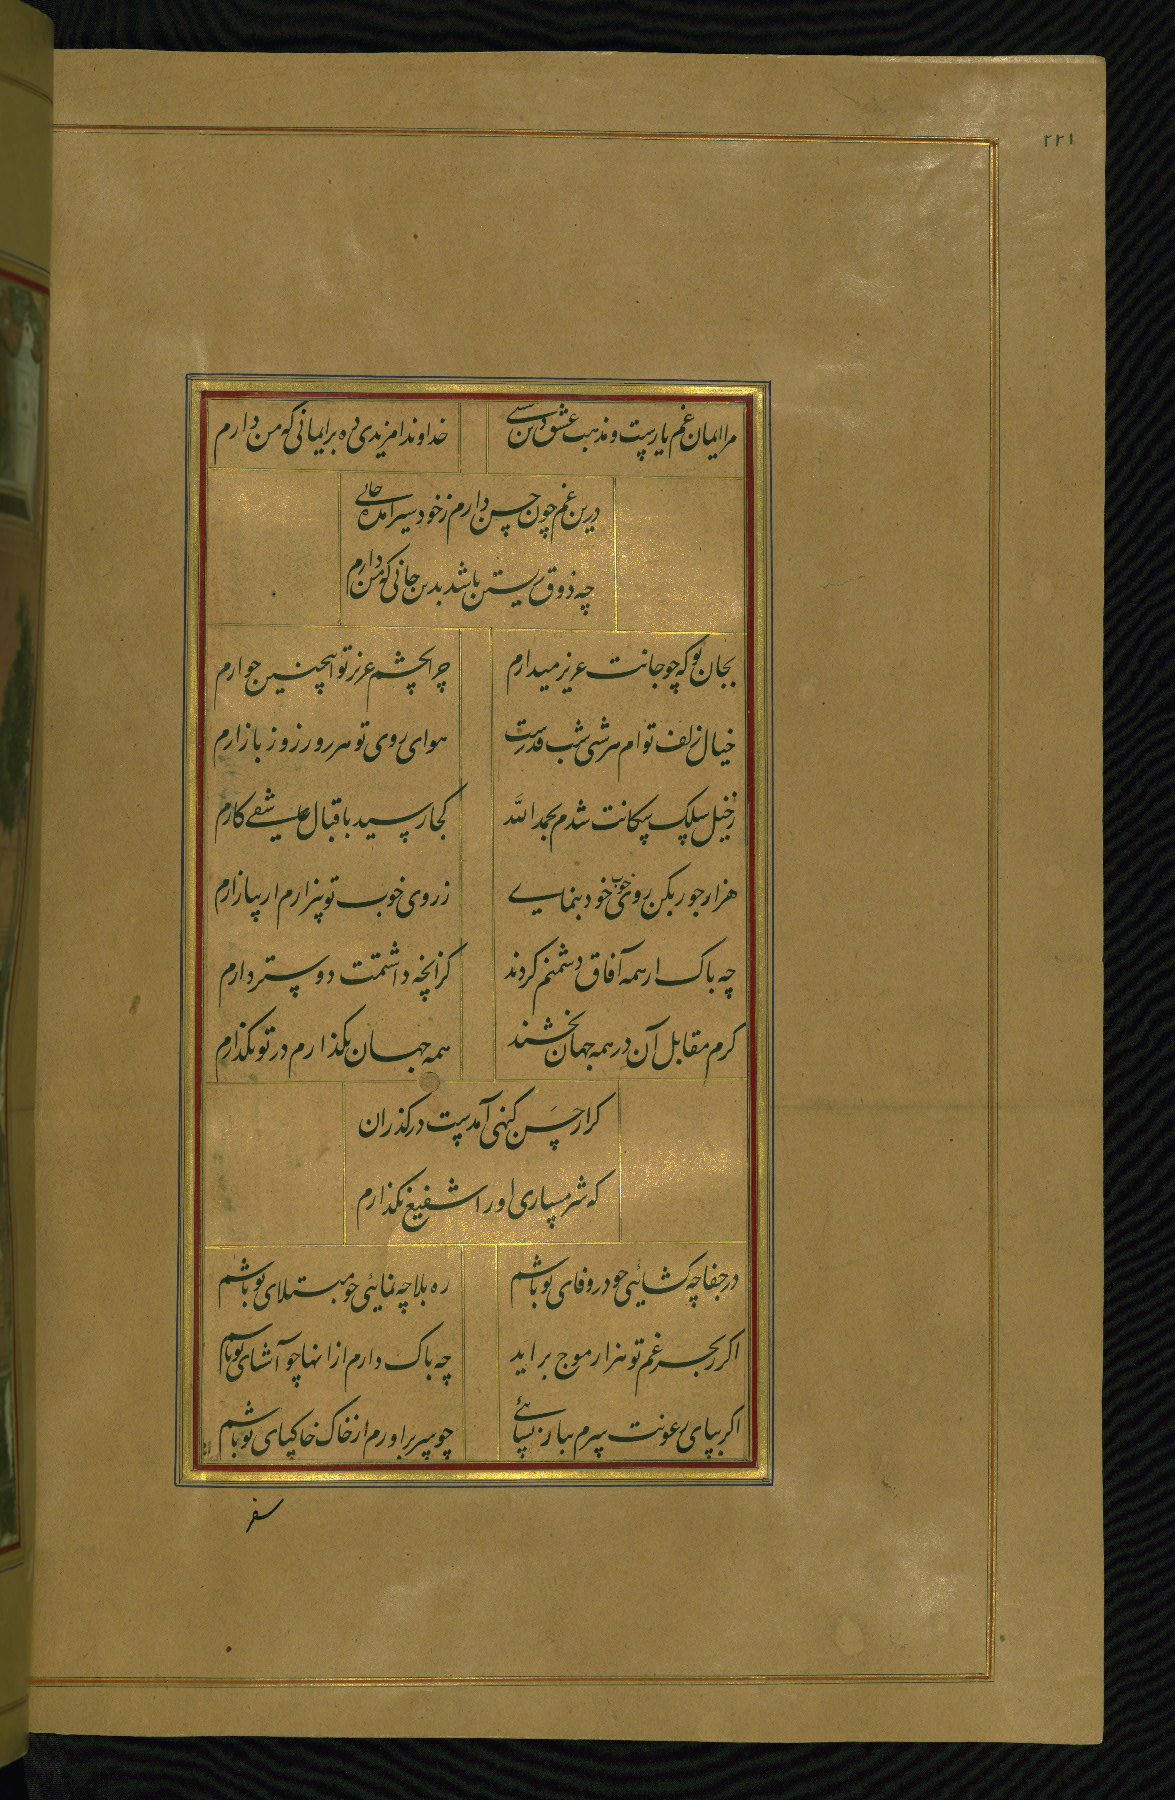 ۲۲۱
مرا ایمان غم یارست و مذهب عشق و دین مستی خداوندا مزیدی ده بر ایمانی که من دارم
درین غم چون حسن دارم ز خود سیر آمده جانی
چه ذوق زیستن باشد بدین جانی که من دارم
بجان تو که چو جانت عزیز میدارم چرا بچشم عزیز تو اینچنین خوارم
خیال زلف توام هر شبی شب قدرست هوای روی تو هر روز روز بازارم
ز خیل سلک سگانت شدم بحمد الله کجا رسید باقبال عاشقی کارم
هزار جور بکن روی خوب خود بنمای ز روی خوب تو بیزارم ار بیازارم
چه باک ار همه آفاق دشمنم کردند کز آنچه داشتمت دوستر دارم
کرم مقابل آن در همه جهان بخشند همه جهان بگذارم در تو نگذارم
کر از حسن گنهی آمدست در گذران
که شرمساری او را شفیع بگذارم
در جفا چه گشایی چو در وفای تو باشم ره بلا چه نمایی چو مبتلای تو باشم
اگر ز بحر غم تو هزار موج براید چه باک دارم از اینها چو آشنای تو باشم
اگر بپای رعونت سرم بباز بسایی چو سر براورم از خاک خاکپای تو باشم
سفر